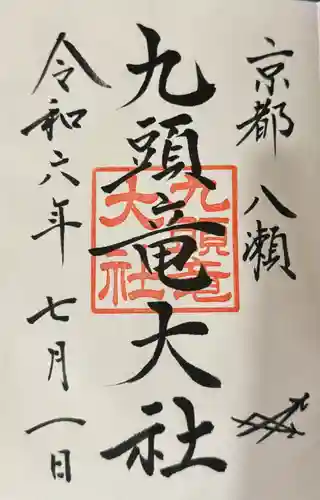 京都 八瀬
九頭竜大社
令和六年 七月一日
九頭竜
大社